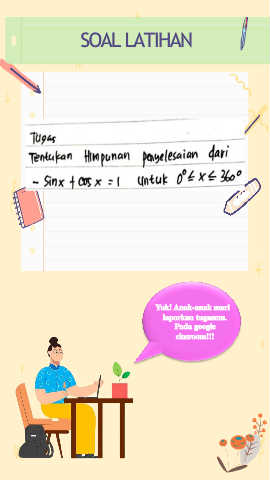 SOAL LATIHAN
Tugas
Tentukan Himpunan penyelesaian dari
- Sinx + cos x = 1 Untuk 0° ≤ x ≤ 360°
Yuk! Anak-anak mari
laporkan tugasnya.
Pada google
classroom!!!